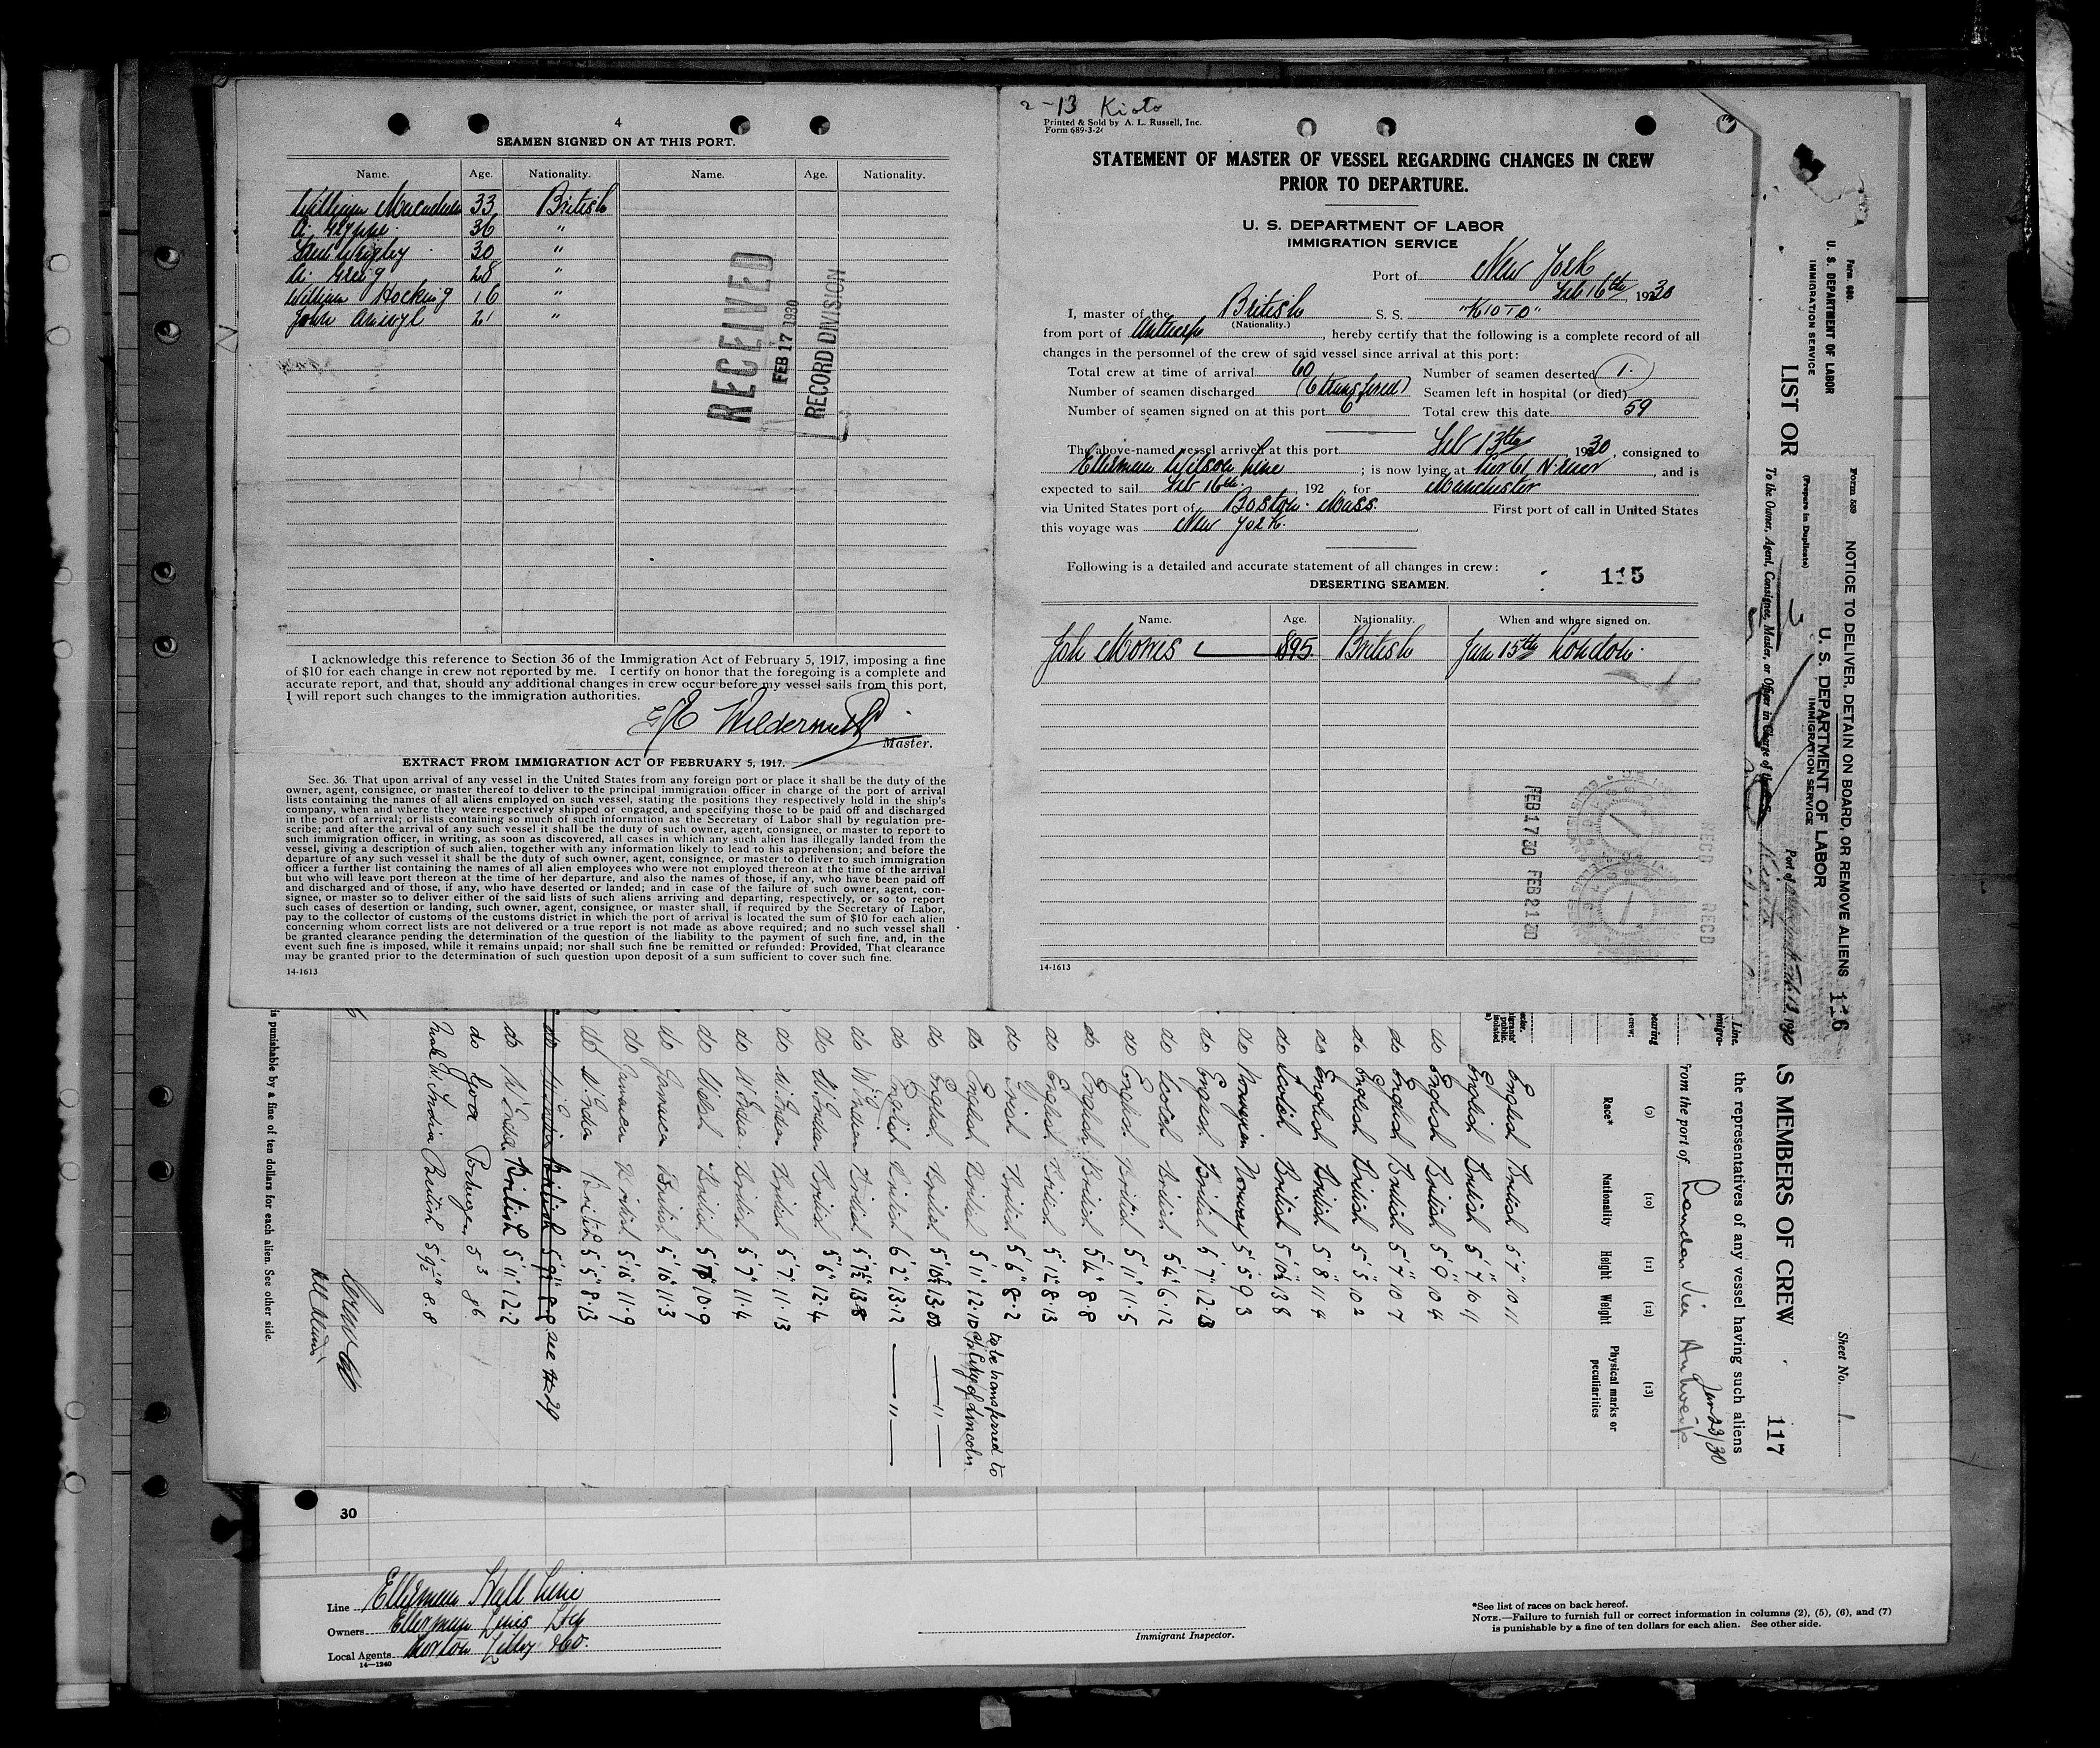 4
SEAMEN SIGNED ON AT THIS PORT.
Name. Age. Nationality. Name. Age. Nationality.
William 33 British
A. 36 "
Wrigley 30 "
A. Greig 28 "
William Hocking 16 "
John 21 "
RECEIVED
FEB 17 1930
RECORD DIVISION
I acknowledge this reference to Section 36 of the Immigration Act of February 5, 1917, imposing a fine
of $10 for each change in crew not reported by me. I certify on honor that the foregoing is a complete and
accurate report, and that, should any additional changes in crew occur before my vessel sails from this port,
I will report such changes to the immigration authorities.
Wildermuth
Master.
EXTRACT FROM IMMIGRATION ACT OF FEBRUARY 5, 1917.
Sec. 36. That upon arrival of any vessel in the United States from any foreign port or place it shall be the duty of the
owner, agent, consignee, or master thereof to deliver to the principal immigration officer in charge of the port of arrival
lists containing the names of all aliens employed on such vessel, stating the positions they respectively hold in the ship's
company, when and where they were respectively shipped or engaged, and specifying those to be paid off and discharged
in the port of arrival; or lists containing so much of such information as the Secretary of Labor shall by regulation pre-
scribe; and after the arrival of any such vessel it shall be the duty of such owner, agent, consignee, or master to report to
such immigration officer, in writing, as soon as discovered, all cases in which any such alien has illegally landed from the
vessel, giving a description of such alien, together with any information likely to lead to his apprehension; and before the
departure of any such vessel it shall be the duty of such owner, agent, consignee, or master to deliver to such immigration
officer a further list containing the names of all alien employees who were not employed thereon at the time of the arrival
but who will leave port thereon at the time of her departure, and also the names of those, if any, who have been paid off
and discharged and of those, if any, who have deserted or landed; and in case of the failure of such owner, agent, con-
signee, or master so to deliver either of the said lists of such aliens arriving and departing, respectively, or so to report
such cases of desertion or landing, such owner, agent, consignee, or master shall, if required by the Secretary of Labor,
pay to the collector of customs of the customs district in which the port of arrival is located the sum of $10 for each alien
concerning whom correct lists are not delivered or a true report is not made as above required; and no such vessel shall
be granted clearance pending the determination of the question of the liability to the payment of such fine, and, in the
event such fine is imposed, while it remains unpaid; nor shall such fine be remitted or refunded: Provided, That clearance
may be granted prior to the determination of such question upon deposit of a sum sufficient to cover such fine.
14-1613
2-13 Kioto
Printed & Sold by A. L. Russell, Inc.
Form 689-3-24
STATEMENT OF MASTER OF VESSEL REGARDING CHANGES IN CREW
PRIOR TO DEPARTURE.
U. S. DEPARTMENT OF LABOR
IMMIGRATION SERVICE
Port of New York
Feb 16th, 1930
I, master of the British S. S. "KIOTO"
(Nationality.)
from port of Antwerp, hereby certify that the following is a complete record of all
changes in the personnel of the crew of said vessel since arrival at this port:
Total crew at time of arrival 60 Number of seamen deserted 1.
Number of seamen discharged (6 transfered) Seamen left in hospital (or died)
Number of seamen signed on at this port 6 Total crew this date 59
The above-named vessel arrived at this port Feb 13th 1930, consigned to
Ellerman Wilson Line ; is now lying at , and is
expected to sail Feb 16th. 192 , for Manchester
via United States port of Boston. Mass. First port of call in United States
this voyage was New York.
Following is a detailed and accurate statement of all changes in crew:
DESERTING SEAMEN.
115
Name. Age. Nationality. When and where signed on.
Joh Morris 1895 British Jan 15th London.
FEB 17 30 FEB 21 30
RECD RECD
14-1613
Form 689.
U. S. DEPARTMENT OF LABOR
IMMIGRATION SERVICE
LIST OR
Form 559
(Prepare in Duplicate)
NOTICE TO DELIVER, DETAIN ON BOARD, OR REMOVE ALIENS
116
U. S. DEPARTMENT OF LABOR
IMMIGRATION SERVICE
Port of
To the Owner, Agent, Consignee, Master, or Officer in Charge of the
AS MEMBERS OF CREW
Sheet No. 1
117
the representatives of any vessel having such aliens
from the port of London via Antwerp Jan 23/30
(9) (10) (11) (12) (13)
Race* Nationality Height Weight Physical marks or peculiarities
English British 5'7" 10 11
English British 5'7" 10 11
do English British 5'9" 10 4
do English British 5'7" 10 7
do English British 5'5" 10 2
do English British 5'8" 11 4
do Scotch British 5'10½ 13 8
do Norwegian Norway 5'5 9 3
do English British 5'7" 12.13
do Scotch British 5'4" 6.12
do English British 5'11" 11.5
do English British 5'4" 8.8
do English British 5'12" 8.13
do Irish British 5'6" 8.2
do English British 5'11" 12.10 to be transferred to City of Lincoln.
do English British 5'10½ 13.00 — " —
do English British 6'2" 13.12 — " —
do W. Indian British 5'7½" 13.8
do W. Indian British 5'6" 12.4
do W. Indian British 5'7" 11.13
do W. Indian British 5'7" 11.4
do Welsh British 10.9
do Jamaica British 5'10" 11.3
do Jamaica British 5'10" 11.9
do W. India British 5'5" 8.13
see # 29
do W. India British 5'11" 12.2
do Goa Portugese 5 3 86
W. India British 5'9½" 8.8
is punishable by a fine of ten dollars for each alien. See other side.
30
Line Ellerman Hall Line
Owners Ellerman Lines Ltd
Local Agents Norton Lilly & Co.
14-1240
Immigrant Inspector.
*See list of races on back hereof.
NOTE.—Failure to furnish full or correct information in columns (2), (5), (6), and (7)
is punishable by a fine of ten dollars for each alien. See other side.